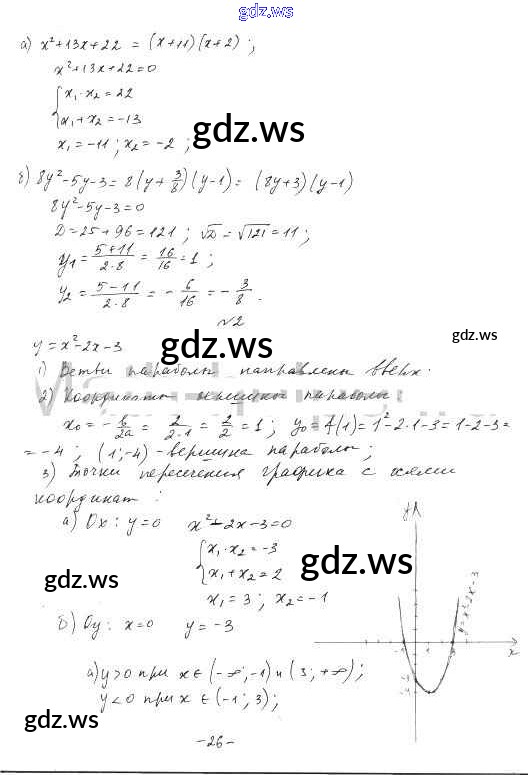 gdz.ws
а) x²+13x+22 = (x+11)(x+2);
x²+13x+22=0
{ x₁·x₂=22
x₁+x₂=-13
x₁=-11; x₂=-2;
gdz.ws
б) 8y²-5y-3=8(y+3/8)(y-1)=(8y+3)(y-1)
8y²-5y-3=0
D=25+96=121; √D=√121=11;
y₁=(5+11)/(2·8)=16/16=1;
gdz.ws
y₂=(5-11)/(2·8)=-6/16=-3/8.
№2
gdz.ws
gdz.ws
y=x²-2x-3
1) Ветви параболы направлены вверх.
2) Координаты вершины параболы
x₀=-b/2a=2/2·1=2/2=1; y₀=f(1)=1²-2·1-3=1-2-3=
=-4; (1;-4)-вершина параболы;
3) Точки пересечения графика с осями
координат:
а) Ox: y=0 x²-2x-3=0
{ x₁·x₂=-3
x₁+x₂=2
gdz.ws
gdz.ws
x₁=3; x₂=-1
б) Oy: x=0 y=-3
y
y=x²-2x-3
-1
1
3
x
а) y>0 при x∈(-∞;-1)и(3;+∞);
y<0 при x∈(-1;3);
gdz.ws
gdz.ws
-26-